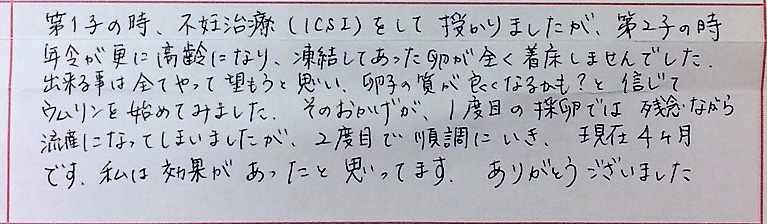 第1子の時、不妊治療(ICSI)をして授かりましたが、第2子の時
年令が更に高齢になり、凍結してあった卵が全く着床しませんでした.
出来る事は全てやって望もうと思い、卵子の質が良くなるかも?と信じて
ウムリンを始めてみました. そのおかげが、1度目の採卵では残念ながら
流産になってしまいましたが、2度目で順調にいき、現在4ヶ月
です. 私は効果があったと思ってます. ありがとうございました